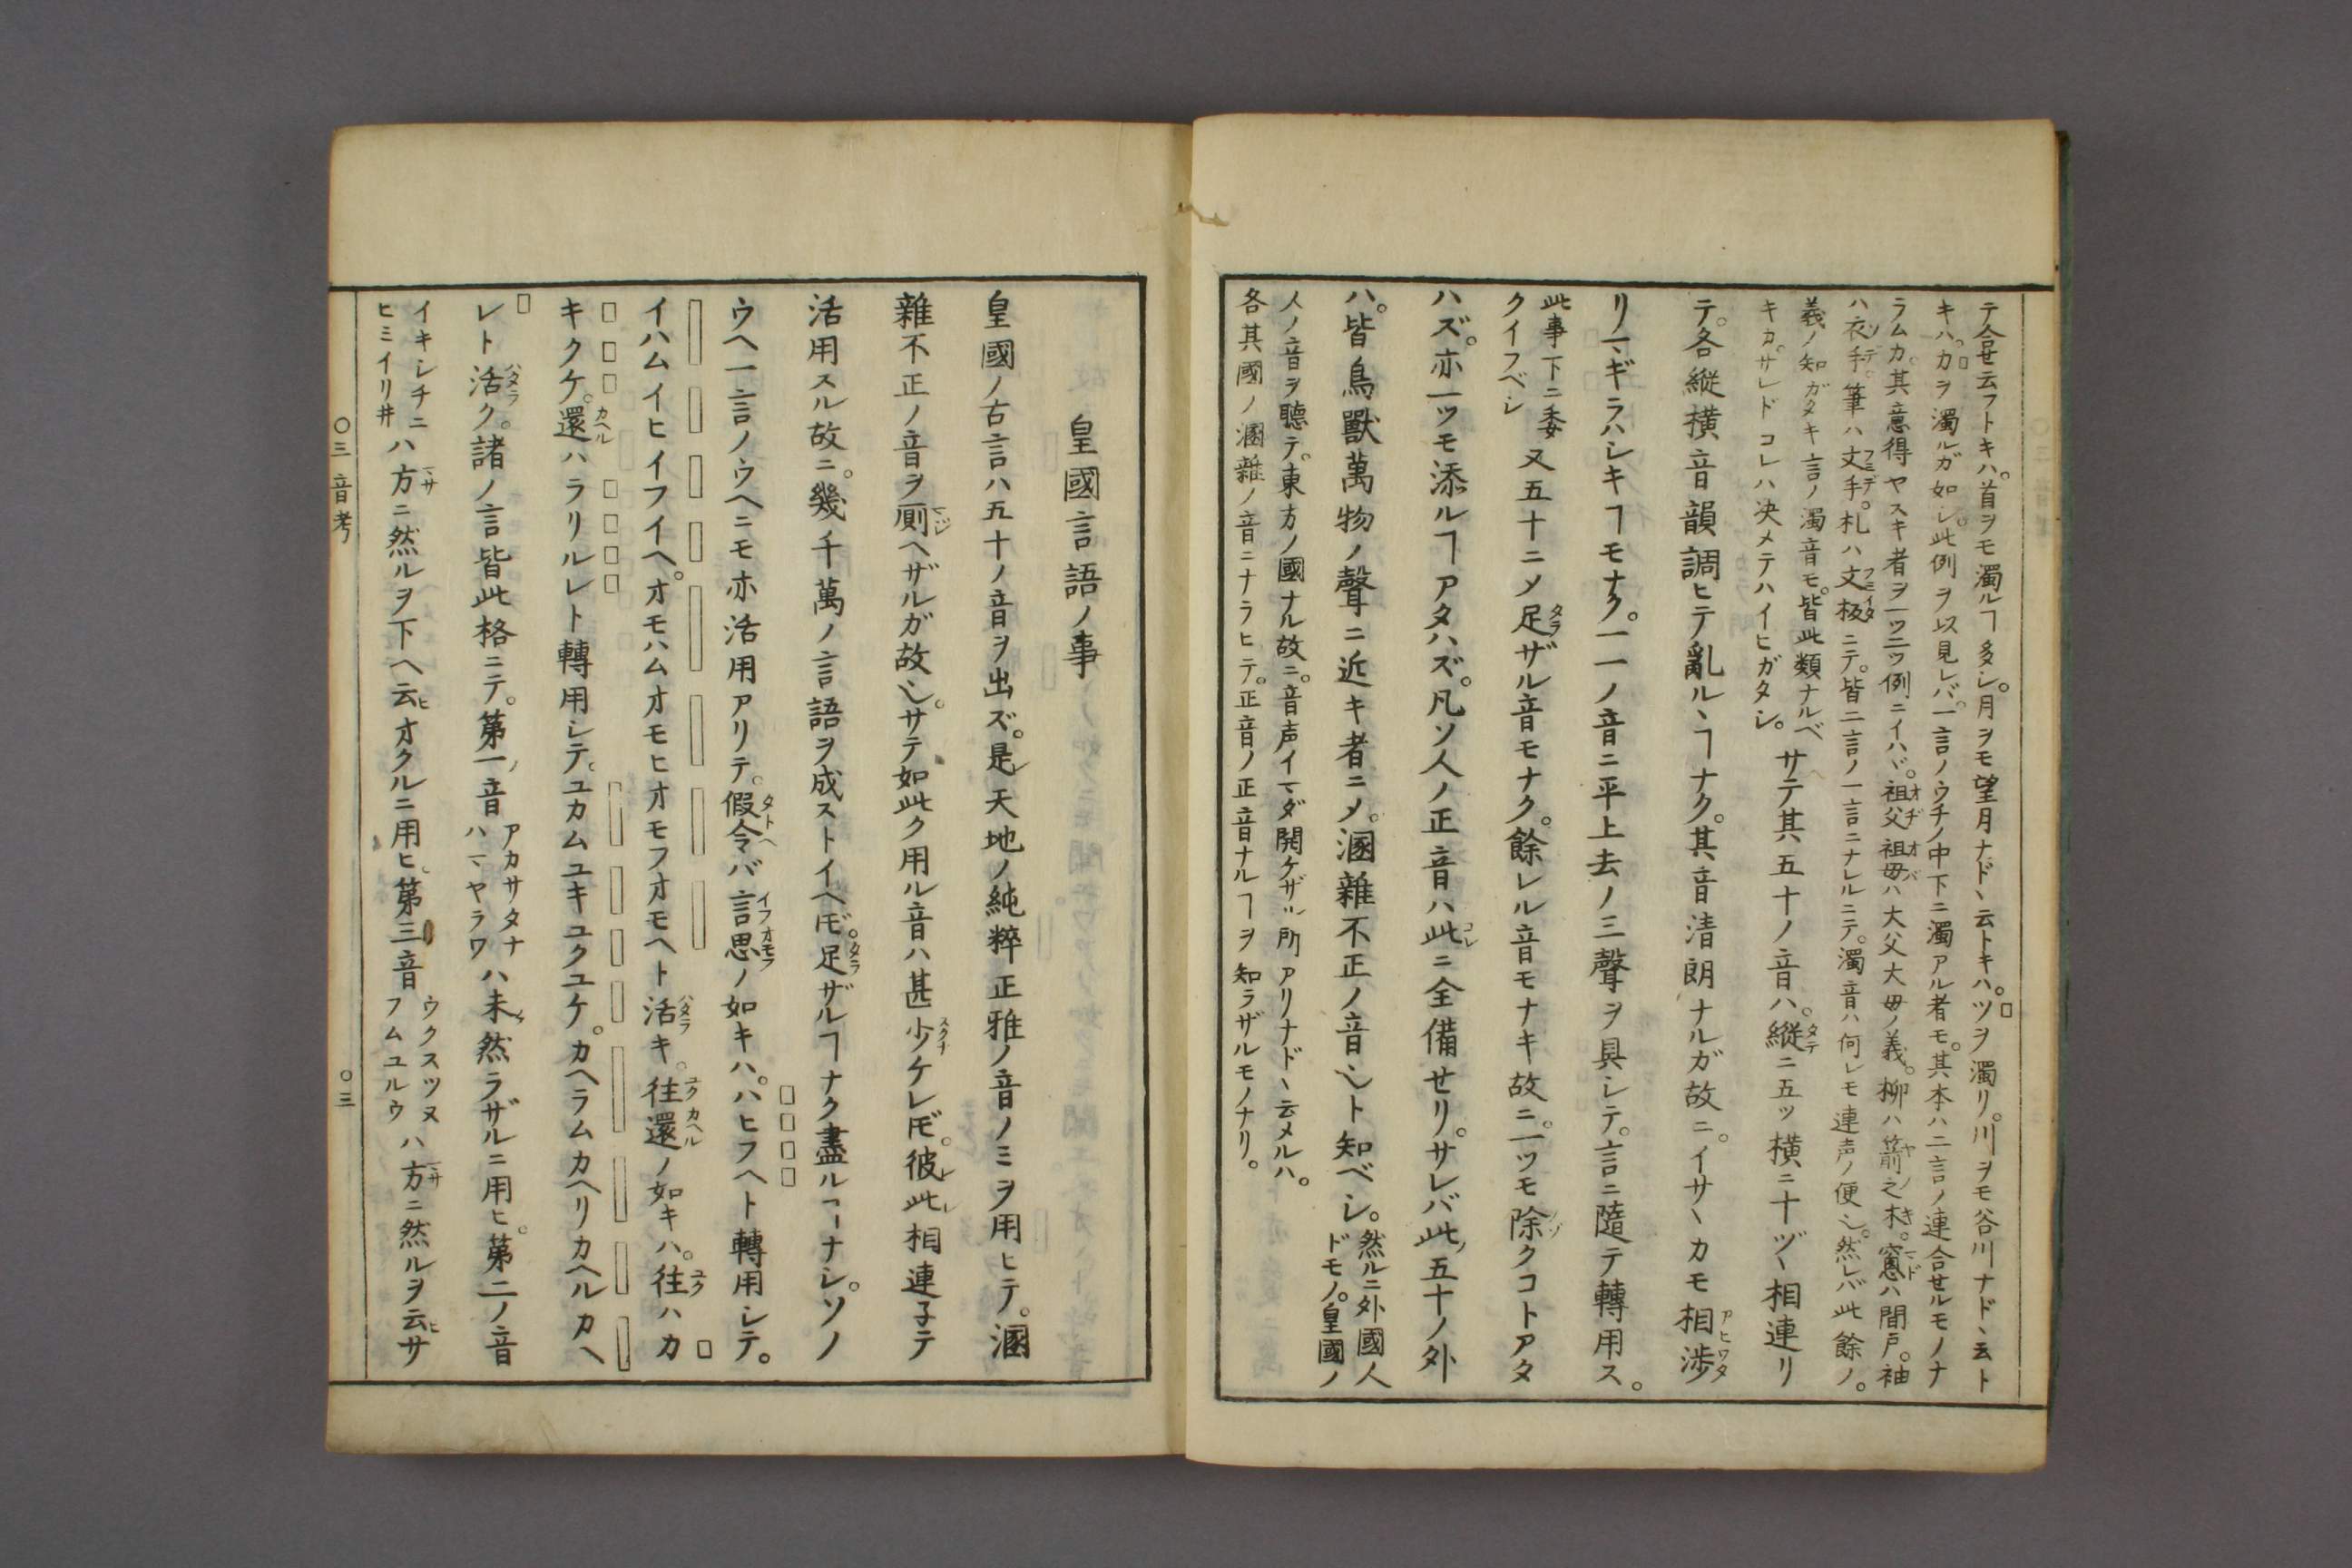 テ合せ云フトキハ。首ヲモ濁ルヿ多シ。月ヲモ望月ナドヽ云トキハ。ツヲ濁リ。川ヲモ谷川ナドヽ云ト
キハ。カヲ濁ルガ如シ。此例ヲ以見レバ。一言ノウチノ中下ニ濁アル者モ。其本ハ二言ノ連合せルモノナ
ラムカ。其意得ヤスキ者ヲ一ツ二ツ例ニイハヾ。祖父祖母ハ大父大母ノ義。柳ハ箭之木。窻ハ間戸。袖
ハ衣手。筆ハ文手。札ハ文板ニテ。皆二言ノ一言ニナレルニテ。濁音ハ何レモ連声ノ便也。然レバ此餘ノ。
義ノ知ガタキ言ノ濁音モ。皆此類ナルベ
キカ。サレドコレハ决メテハイヒガタシ。
サテ其五十ノ音ハ。縦ニ五ツ横ニ十ヅヽ相連リ
テ。各縦横音韻調ヒテ亂ルヽヿナク。其音清朗ナルガ故ニ。イサヽカモ相渉
リマギラハシキヿモナク。一一ノ音ニ平上去ノ三聲ヲ具シテ。言ニ隨テ轉用ス。
此事下ニ委
クイフベシ
又五十ニメ足ザル音モナク。餘レル音モナキ故ニ。一ツモ除クコトアタ
ハズ。亦一ツモ添ルヿアタハズ。凡ソ人ノ正音ハ此ニ全備せリ。サレバ此五十ノ外
ハ。皆鳥獸萬物ノ聲ニ近キ者ニメ。溷雜不正ノ音也ト知ベシ。
然ルニ外國人
ドモノ。皇國ノ
人ノ音ヲ聴テ。東方ノ國ナル故ニ。音声イマダ開ケザル所アリナドヽ云メルハ。
各其國ノ溷雜ノ音ニナラヒテ。正音ノ正音ナルヿヲ知ラザルモノナリ。
皇國言語ノ事
皇國ノ古言ハ五十ノ音ヲ出ズ。是レ天地ノ純粹正雅ノ音ノミヲ用ヒテ。溷
雜不正ノ音ヲ厠ヘザルガ故也。サテ如此ク用ル音ハ甚少ケレ𪜈。彼レ此レ相連子テ
活用スル故ニ。幾千萬ノ言語ヲ成ストイヘ𪜈。足ザルヿナク盡ルヿナシ。ソノ
ウヘ一言ノウヘニモ亦活用アリテ。假令バ言思ノ如キハ。ハヒフヘト轉用シテ。
イハムイヒイフイヘ。オモハムオモヒオモフオモヘト活キ。往還ノ如キハ。往ハカ
キクケ。還ハラリルレト轉用シテ。ユカムユキユクユケ。カヘラムカヘリカヘルカヘ
レト活ク。諸ノ言皆此格ニテ。第一ノ音
アカサタナ
ハマヤラワ
ハ未ダ然ラザルニ用ヒ。第二ノ音
イキシチニ
ヒミイリ井
ハ方ニ然ルヲ下ヘ云ヒオクルニ用ヒ。第三音
ウクスツヌ
フムユルウ
ハ方ニ然ルヲ云ヒサ
〇三音考
〇三